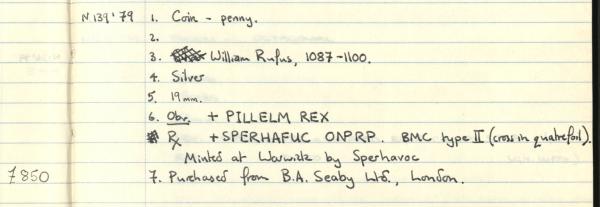 N139'79 1. Coin - penny.
2.
3. William Rufus, 1087-1100.
4. Silver
5. 19mm.
6. Obv. + PILLELM REX
Rx +SPERHAFUC ONPRP. BMC type II (cross in quatrefoil).
Minted at Warwick by Sperhavoc
7850 7. Purchased from B.A. Seaby Ltd., London.